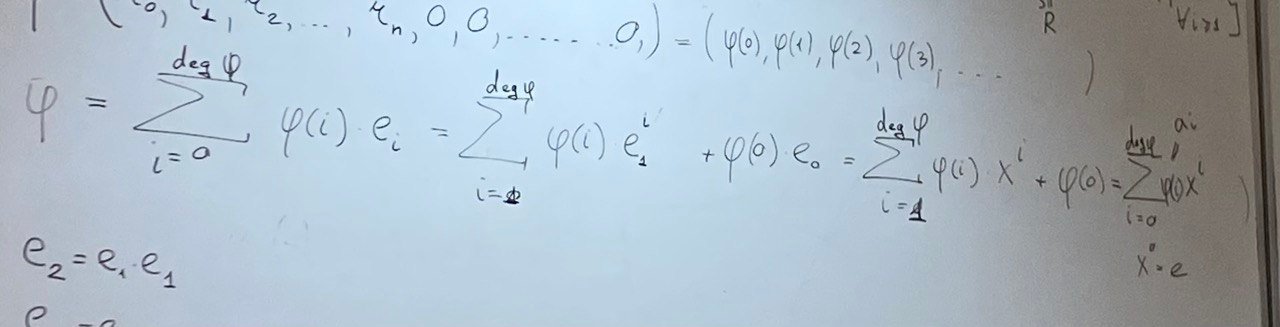 (r₀, r₁, r₂, ..., rₙ, 0, 0, ....... 0,) = (φ(0), φ(1), φ(2), φ(3), ... )
R
φ = ∑_{i=0}^{deg φ} φ(i) · e_i = ∑_{i=1}^{deg φ} φ(i) e_1^i + φ(0) · e_0 = ∑_{i=1}^{deg φ} φ(i) · x^i + φ(0) = ∑_{i=0}^{deg φ} φ(i) x^i
a_i
x^0 = e
e_2 = e_1 · e_1